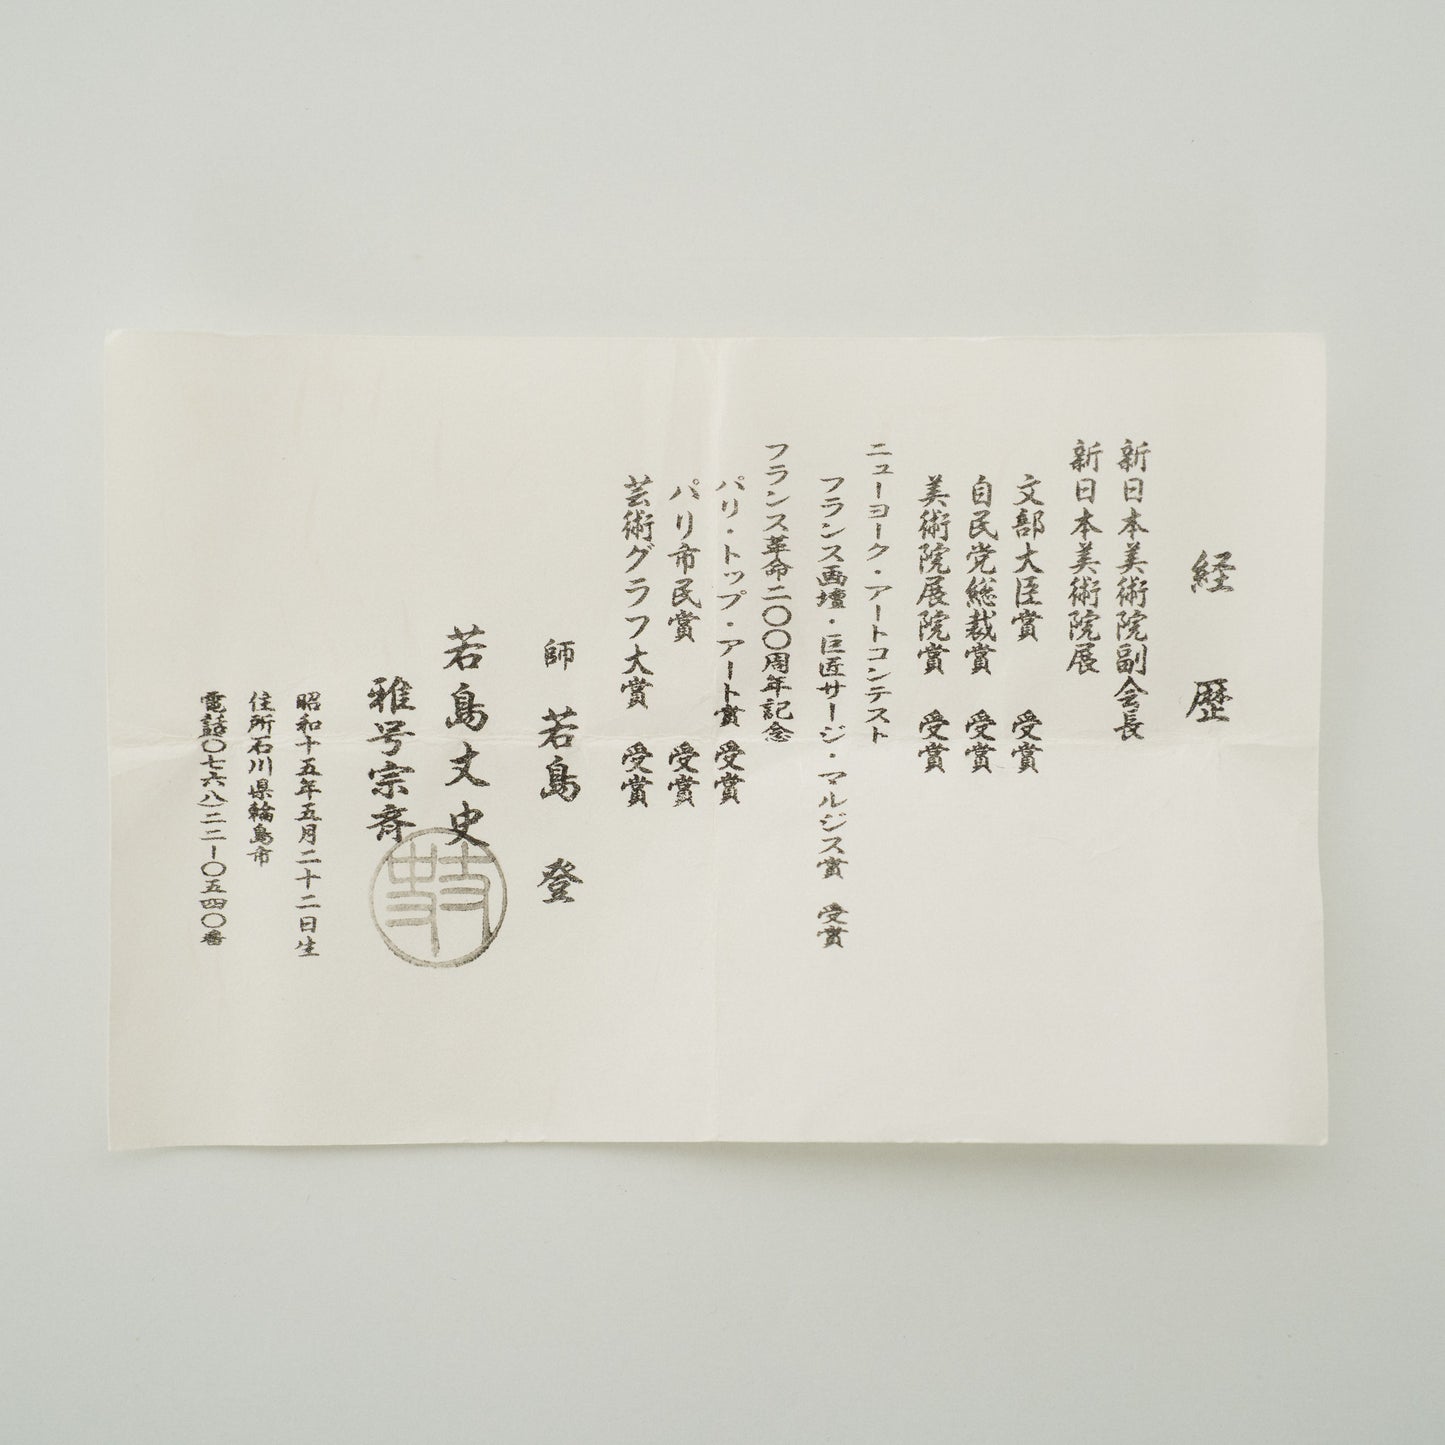 経歴
新日本美術院副会長
新日本美術院展
文部大臣賞 受賞
自民党総裁賞 受賞
美術院展院賞 受賞
ニューヨーク・アートコンテスト
フランス画壇・巨匠サージ・マルジス賞 受賞
フランス革命二〇〇周年記念
パリ・トップ・アート賞 受賞
パリ市民賞 受賞
芸術グラフ大賞 受賞
師 若島 登
若島丈史
雅号宗斉
昭和十五年五月二十二日生
住所石川県輪島市
電話〇七六八)二二ー〇五四〇番